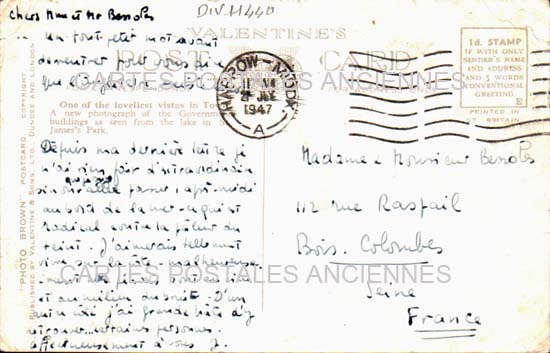 Chers Mme et Mr Bessoles
DIV.11440
Un tout petit mot avant
de rentrer pour vous dire
que l'Angleterre
VALENTINE'S
POST CARD
1d. STAMP
IF WITH ONLY
SENDER'S NAME
AND ADDRESS
AND 5 WORDS
CONVENTIONAL
GREETING
PRINTED IN
GT BRITAIN
HARROW - MIDDX
1947
A
CARTES POSTALES ANCIENNES
One of the loveliest vistas in
A new photograph of the Government
buildings as seen from the lake in St
James's Park.
"PHOTO BROWN" POSTCARD. COPYRIGHT.
PUBLISHED BY VALENTINE & SONS, LTD. DUNDEE AND LONDON
Depuis ma dernière lettre je
n'ai rien fait d'extraordinaire
sinon passer l'après-midi
au bord de la mer ce qui est
radical contre la pâleur du
teint. J'aimerais tellement
vivre sur la côte malheureuse-
ment
et au milieu du bruit. D'un
autre côté j'ai grande hâte d'y
retrouver certaines personnes.
Affectueusement à vous
Madame & Monsieur Bessoles
112 rue Raspail
Bois. Colombes
Seine
France
CARTES POSTALES ANCIENNES